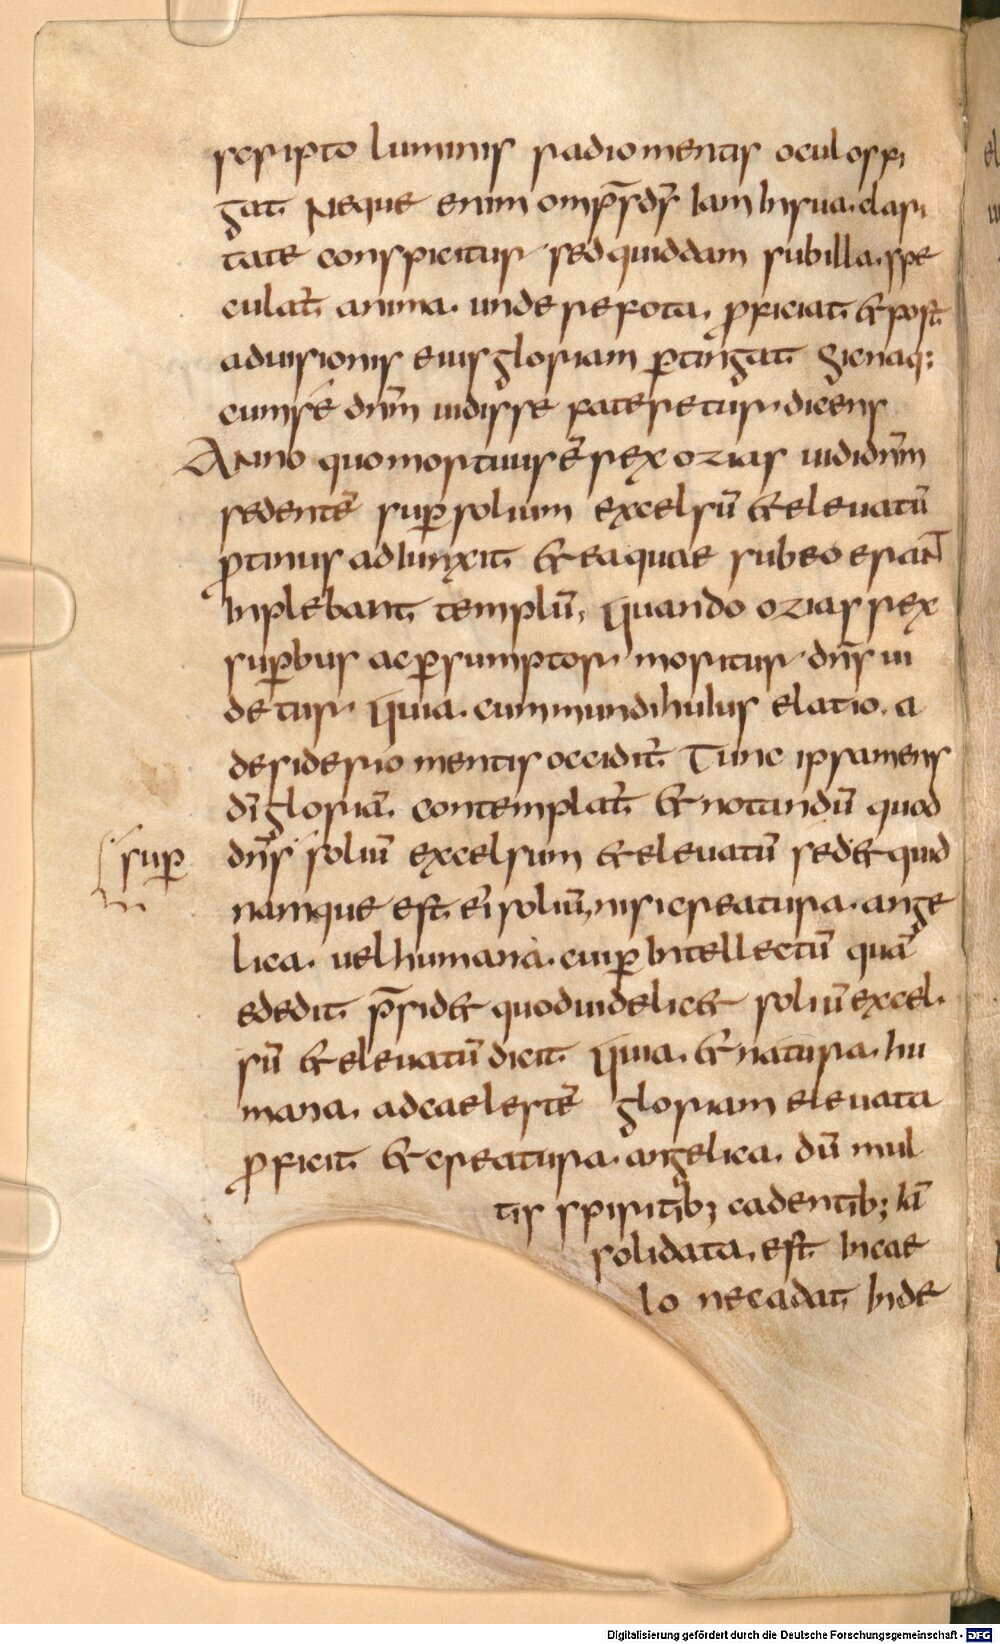 recipto luminis radio mentis oculos fi
gat. Neque enim omps̄ ds̄ iam in sua. clari
tate conspicitur sed quiddam sub illa. spe
culat̄ anima. unde refota. proficiat. & post
ad uisionis eius gloriam ꝑtingat. hienaq;
cum se dn̄m uidisse fateretur dicens
Anno quo mortuus ē rex ozias uidi dn̄m
sedentē suꝑ solium excelsū & eleuatū
ꝓtinus adiunxit. & ea quae sub eo erant
inplebant templū, Quando ozias rex
suꝑbus ac p̄sumptor moritur dn̄s ui
detur Quia. cum mundi huius elatio. a
desiderio mentis occidit. Tunc ipsa mens
dī gloriā. contemplat̄. & notandū quod
suꝑ
dn̄s soliū excelsum & eleuatū sed& quid
namque est ei solium, nisi creatura. ange
lica. uel humana. cui ꝑ intellectū quā
e dedit. p̄sid& quod uidelic& soliū excel
sū & eleuatū dicit. Quia. & natura. hu
mana. ad caelestē gloriam eleuata
ꝓficit. & creatura. angelica. dū mul
tis spiritib; cadentib; iā
solidata. est. in cae
lo ne cadat. inde
Digitalisierung gefördert durch die Deutsche Forschungsgemeinschaft - DFG